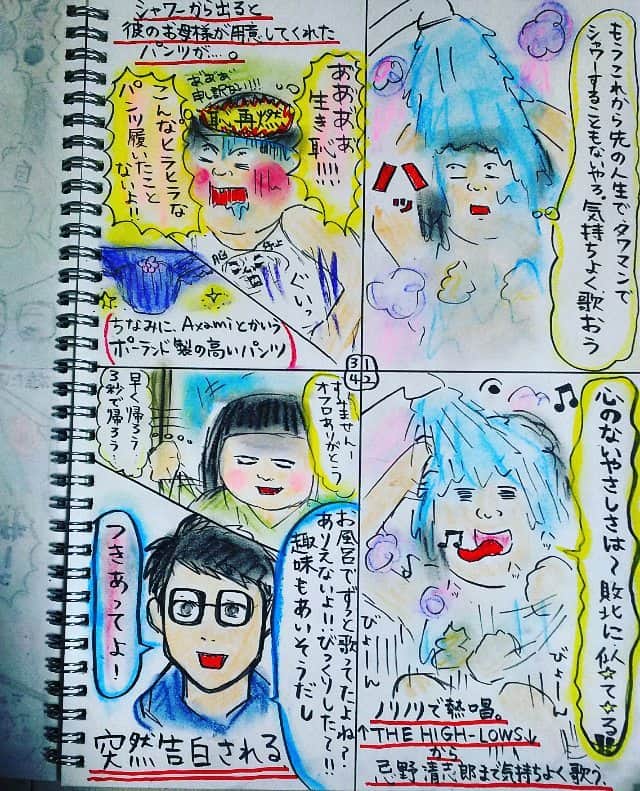 もうこれから先の人生でタワマンで
シャワーすることもないやろ。気持ちよく歌おう
ハッ
3 1
4 2
心のないやさしさは〜敗北に似てる!!
びょーん
びょーん
ノリノリで熱唱。
↑THE HIGH-LOWS↓
から
忌野清志郎まで気持ちよく歌う.
シャワーから出ると
彼のお母様が用意してくれた
パンツが…。
ああああ
生き恥!!!!
あああ
申し訳ない!!!
恥、再燃
こんなヒラヒラな
パンツ履いたこと
ないよ!!
ぐいっ
ちなみに、Axamiとかいう
ポーランド製の高いパンツ
すみませんー
オフロありがとう
早く帰ろう
3秒で帰ろう
お風呂でずっと歌ってたよね?
ありえないよ!!びっくりした〜!!
趣味もあいそうだし
つきあってよ!
突然告白される